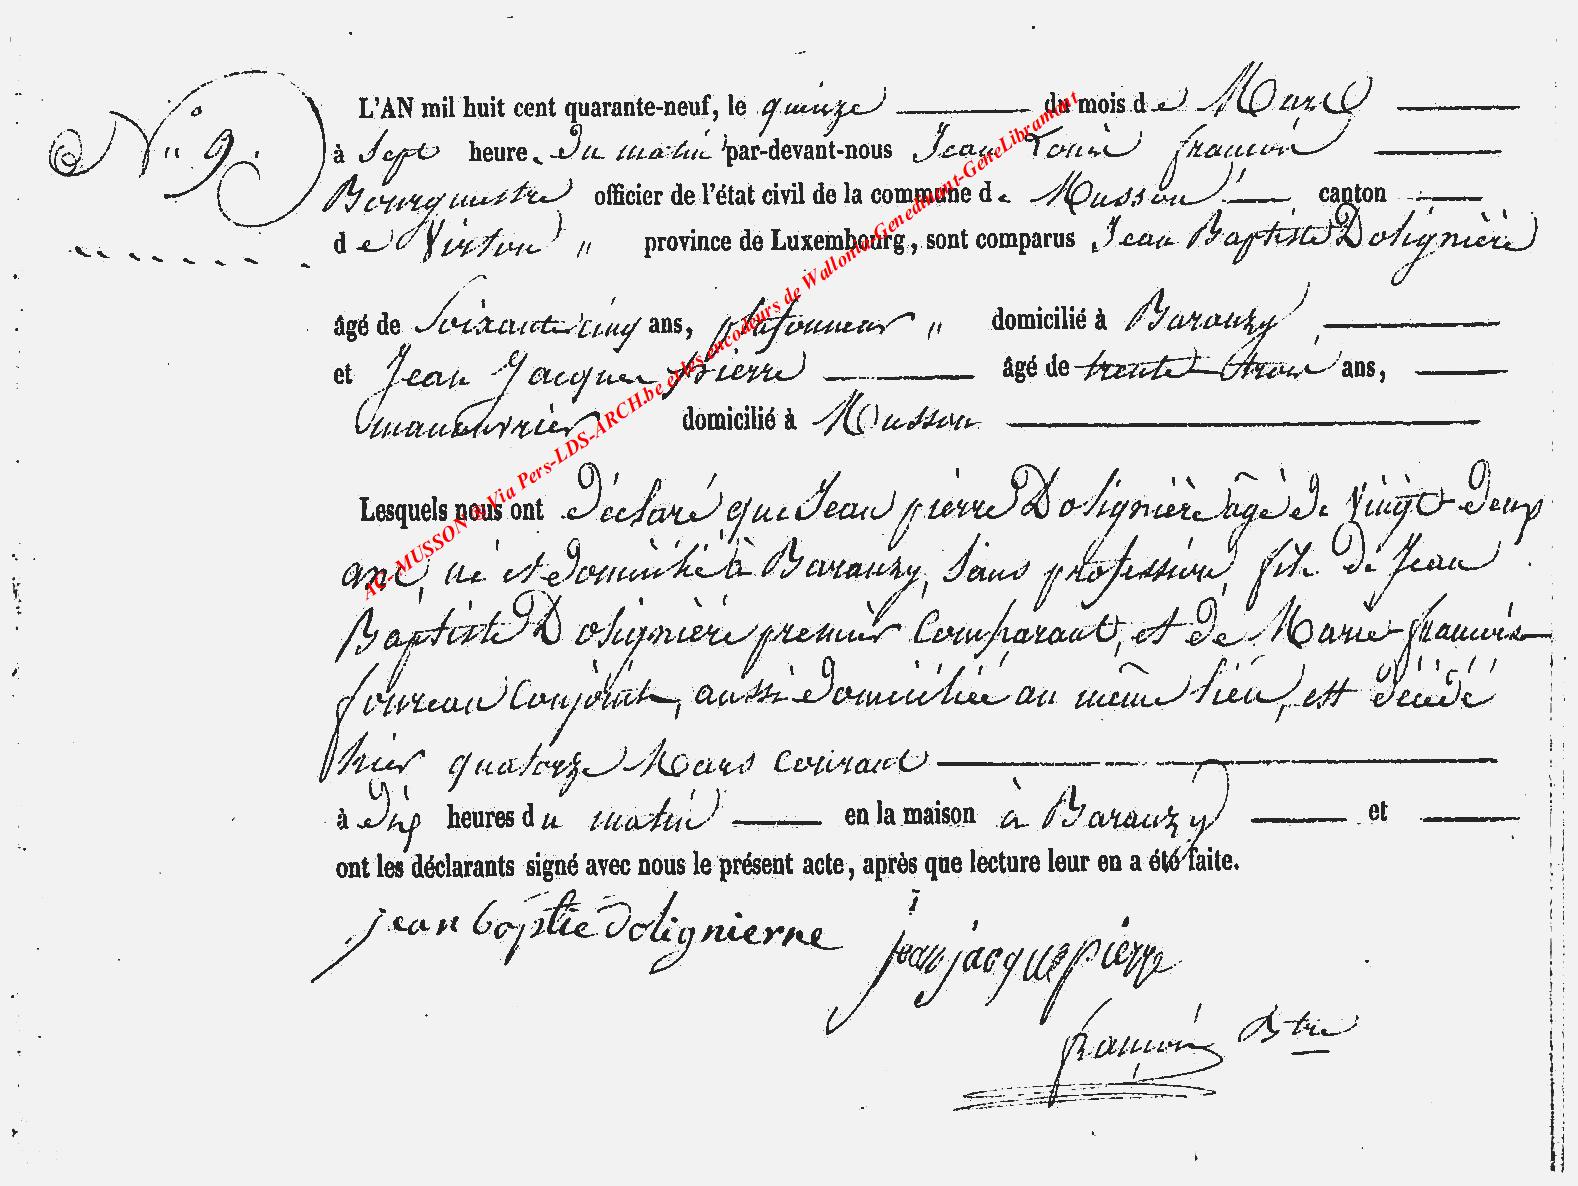 N° 9.
L'AN mil huit cent quarante-neuf, le quinze du mois de Mars
à Sept heures du matin par-devant-nous Jean Louis françois
Bourgmestre officier de l'état civil de la commune de Musson canton
de Virton " province de Luxembourg, sont comparus Jean Baptiste Dolignière
âgé de Soixante cinq ans, plafonneur " domicilié à Baranzy
et Jean Jacques pierre âgé de trente trois ans,
manouvrier domicilié à Musson
Lesquels nous ont déclaré que Jean pierre Dolignière âgé de vingt deux
ans, né et domicilié à Baranzy, sans profession, fils de Jean
Baptiste Dolignière premier Comparant, et de Marie françoise
foureau Conjoints, aussi domiciliée au même lieu, est décédé
hier quatorze Mars Courant
à dix heures du matin en la maison à Baranzy et
ont les déclarants signé avec nous le présent acte, après que lecture leur en a été faite.
jean baptiste dolignierre
jean jacques pierre
françois Bstre
AC-MUSSON & Via Pers-LDS-ARCH.be et les encodeurs de Wallonia-Genedinant-GeneLibramont